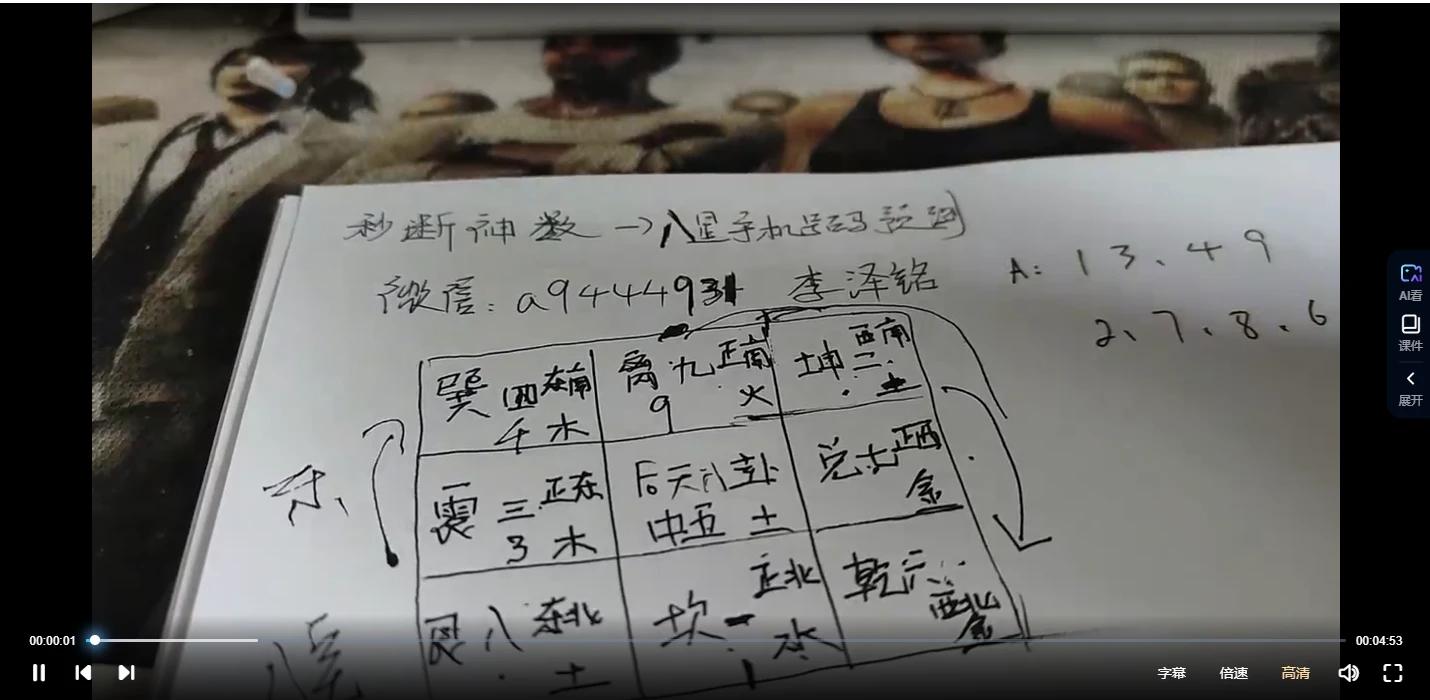 秒断神数→八星手机号码预测
微信：a9444931 李泽铭
A：13、49
2、7、8、6
巽 四 东南
4 木
离 九 正南
9 火
坤 二 西南
土
震 三 正东
3 木
后天八卦
中五 土
兑七 正西
金
艮 八 东北
土
坎 一 正北
1 水
乾六 西北
金
东、
AI看
课件
展开
00:00:01
00:04:53
字幕
倍速
高清